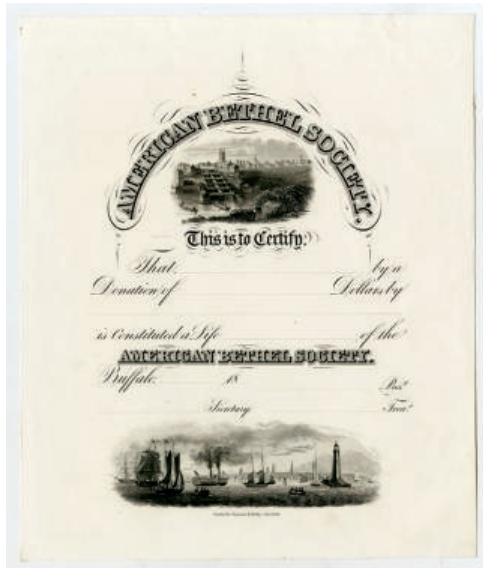 AMERICAN BETHEL SOCIETY.
This is to Certify:
That by a
Donation of Dollars by
is Constituted a Life of the
AMERICAN BETHEL SOCIETY.
Buffalo. 18 Pres.t
Secretary Treas.r